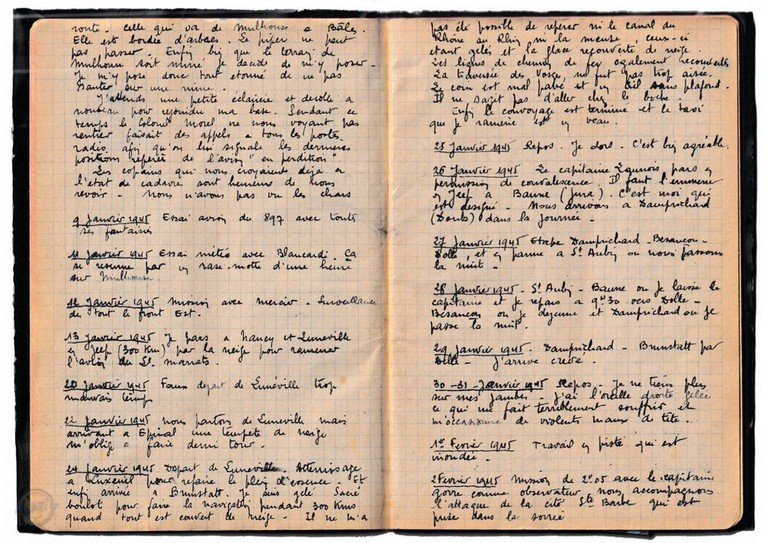 route. Celle qui va de Mulhouse a Bâles.
Elle est bordée d'arbres. Le piper ne peut
pas passer. Enfin bien que le terrain de
Mulhouse soit miné je decide de m'y poser.
Je m'y pose donc tout etonné de ne pas
sauter sur une mine.
J'attends une petite éclaircie et décolle a
nouveau pour rejoindre ma base. Pendant ce
temps le Colonel Morel ne nous voyant pas
rentrer faisait des appels a tous les postes
radio afin qu'on lui signale les dernieres
positions reperées de l'avion "en perdition"
Les copains qui nous croyaient déjà a
l'état de cadavre sont heureux de nous
revoir. Nous n'avons pas vu les chars
9 Janvier 1945 Essai avion du 897 avec toute
ses fantaisies
11 Janvier 1945 Essai météo avec Blancardi. Ca
se resume par un rase-motte d'une heure
sur Mulhouse.
12 Janvier 1945 Mission avec mercier. Surveillance
de tout le front Est.
13 Janvier 1945 Je pars a Nancy et Luneville
en Jeep (300 Km) par la neige pour ramener
l'avion du Lt. marrets.
20 Janvier 1945 Faux depart de Lunéville trop
mauvais temps
22 Janvier 1945 nous partons de Luneville mais
arrivant a Epinal une tempete de neige
m'oblige a faire demi tour.
24 Janvier 1945 Depart de Luneville. Atterrissage
a Luxeuil pour refaire le plein d'essence. Et
enfin arrivée a Brunstatt. Je suis gelé. Sacré
boulot pour faire la navigation pendant 300 Kms
quand tout est couvert de neige. Il ne m'a
pas été possible de reperer ni le canal du
Rhône au Rhin ni la meuse, ceux-ci
etant gelés et la glace recouverte de neige.
Les lignes de chemin de fer egalement recouvertes
La traversée des Vosges ne fut pas trop aisée.
Le coin est mal pavé et un ciel sans plafond.
Il ne s'agit pas d'aller chez le boche.
Enfin le convoyage est terminé et le taxi
que je ramene est un beau.
25 Janvier 1945 Repos. Je dors. C'est bien agréable.
26 Janvier 1945 Le capitaine pars en
permission de convalescence. Il faut l'emmener
en Jeep a Baume (Jura). C'est moi qui
est designé. Nous arrivons a Damprichard
(Doubs) dans la journée.
27 Janvier 1945 Etape Damprichard - Besancon -
Dolle, et en panne a St Aubin ou nous passons
la nuit.
28 Janvier 1945. St Aubin - Baume ou je laisse le
capitaine et je repars a 9h30 vers Dolle -
Besancon ou je dejeune et Damprichard ou je
passe la nuit.
29 Janvier 1945. Damprichard - Brunstatt par
Delle - J'arrive crevé.
30-31-Janvier 1945 Repos - Je ne tiens plus
sur mes jambes. J'ai l'oreille droite gelée
ce qui me fait terriblement souffrir et
m'occasionne de violents maux de tête.
1er Fevrier 1945 Travail en piste qui est
inondée.
2 Fevrier 1945 Mission de 2h05 avec le capitaine
gorre comme observateur nous accompagnons
l'attaque de la cité Ste Barbe qui est
prise dans la soirée